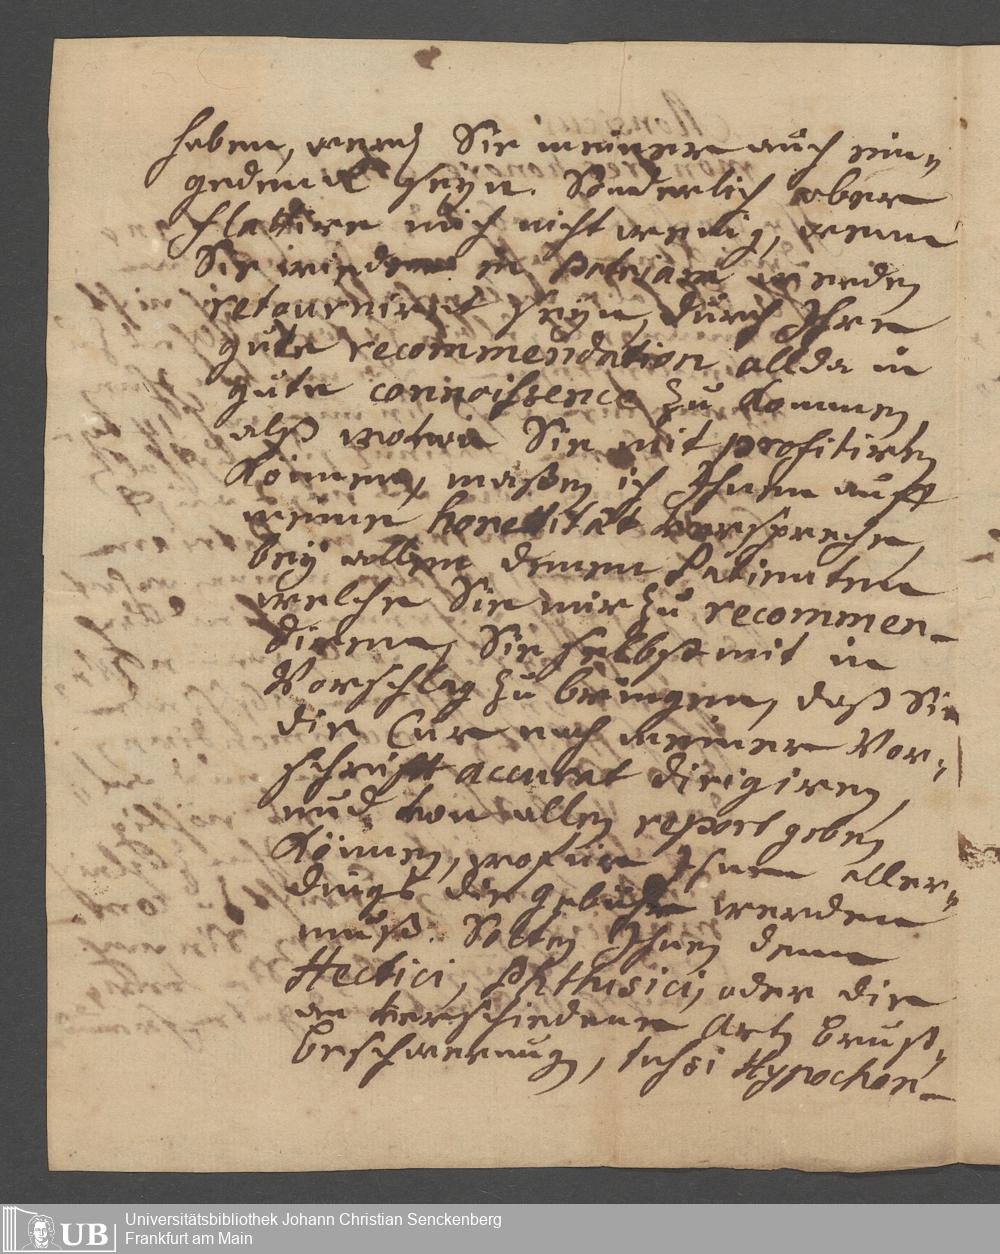 haben, werd Sie meiner auch ein„
gedenck seyn. Sonderlich aber
flattire mich nicht wenig, wenn
Sie wieder in patriam werden
retourniret seyn, durch Ihre
gute recommendation allda in
gute connoissence zu kommen,
alß wovon Sie mit profitiren
können, maßen ich Ihnen auff
meine honettität verspreche,
bey allen denen Patienten
welche Sie mir zu recommen-
diren, Sie selbst mit in
Vorschlag zu bringen, daß Sie
die Cur nach meiner Vor„
schrifft accurat dirigiren,
und von allen report geben
können, wofür Ihnen aller„
dings die gebühr werden
muß. Solten Ihnen denn
Hectici, Phthisici, oder die
an verschiedene Arth Brust„
beschwerung, tussi Hypochon-
Universitätsbibliothek Johann Christian Senckenberg
Frankfurt am Main
UB